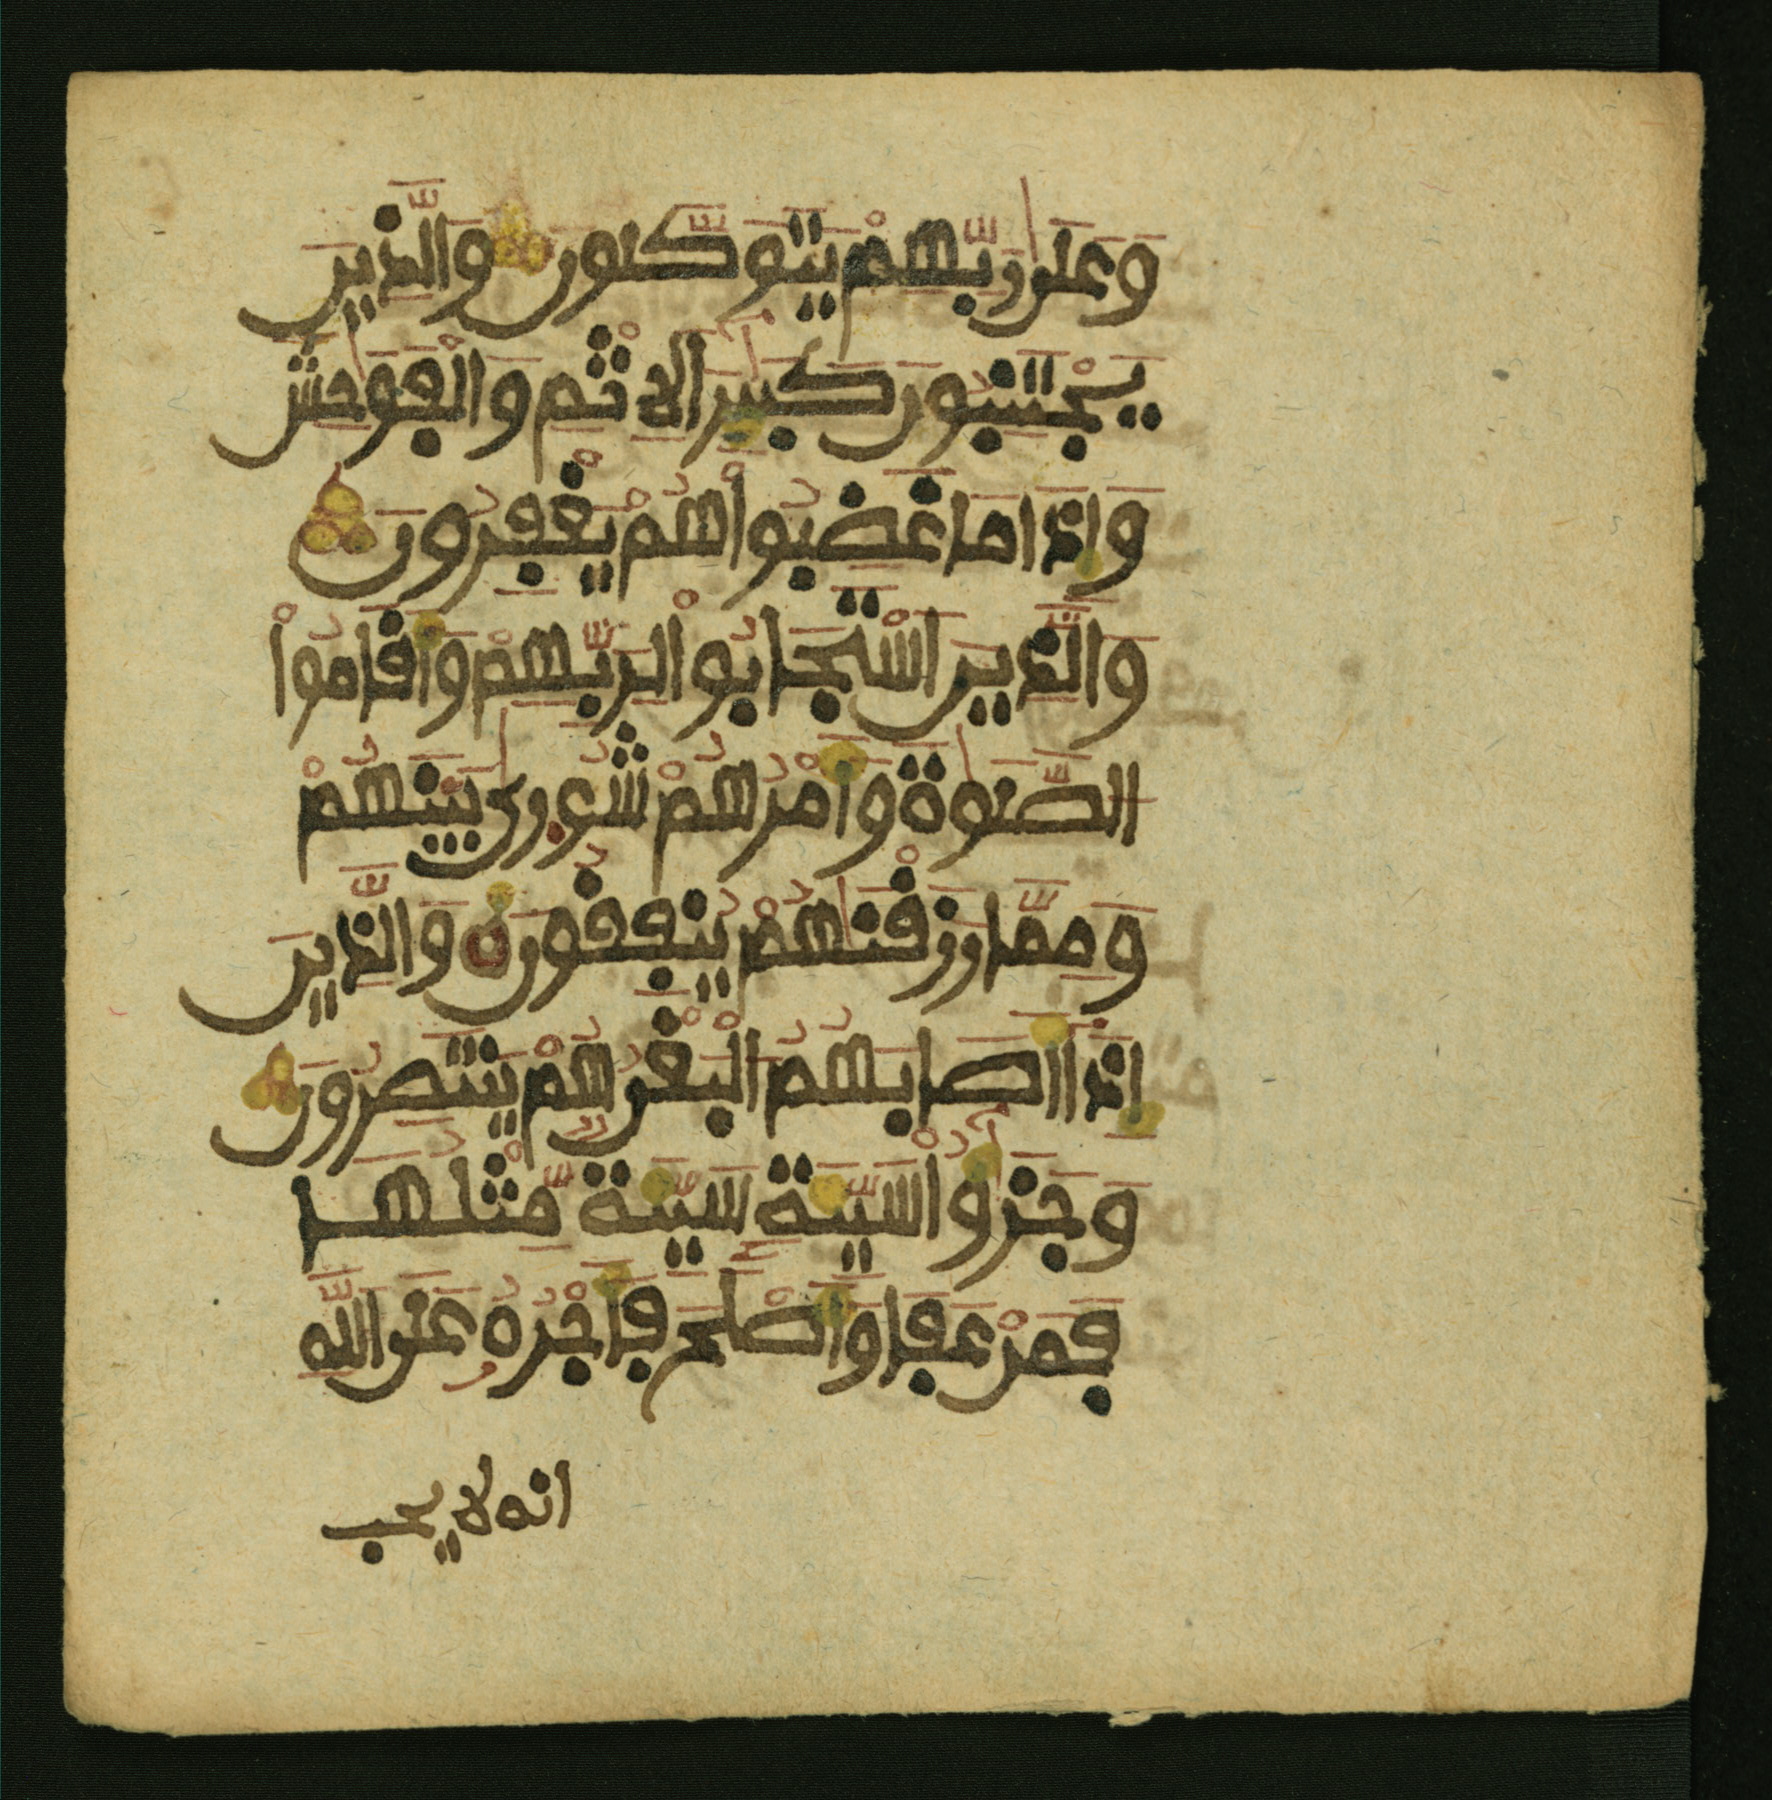 وَعَلَىٰ رَبِّهِمْ يَتَوَكَّلُونَ وَالَّذِينَ
يَجْتَنِبُونَ كَبَٰٓئِرَ الْإِثْمِ وَالْفَوَٰحِشَ
وَإِذَا مَا غَضِبُواْ هُمْ يَغْفِرُونَ
وَالَّذِينَ اسْتَجَابُواْ لِرَبِّهِمْ وَأَقَامُواْ
الصَّلَوٰةَ وَأَمْرُهُمْ شُورَىٰ بَيْنَهُمْ
وَمِمَّا رَزَقْنَٰهُمْ يُنفِقُونَ وَالَّذِينَ
إِذَآ أَصَابَهُمُ الْبَغْىُ هُمْ يَنتَصِرُونَ
وَجَزَٰٓؤُاْ سَيِّئَةٍ سَيِّئَةٌ مِّثْلُهَا
فَمَنْ عَفَا وَأَصْلَحَ فَأَجْرُهُ عَلَى اللَّهِ
انه لا يحب